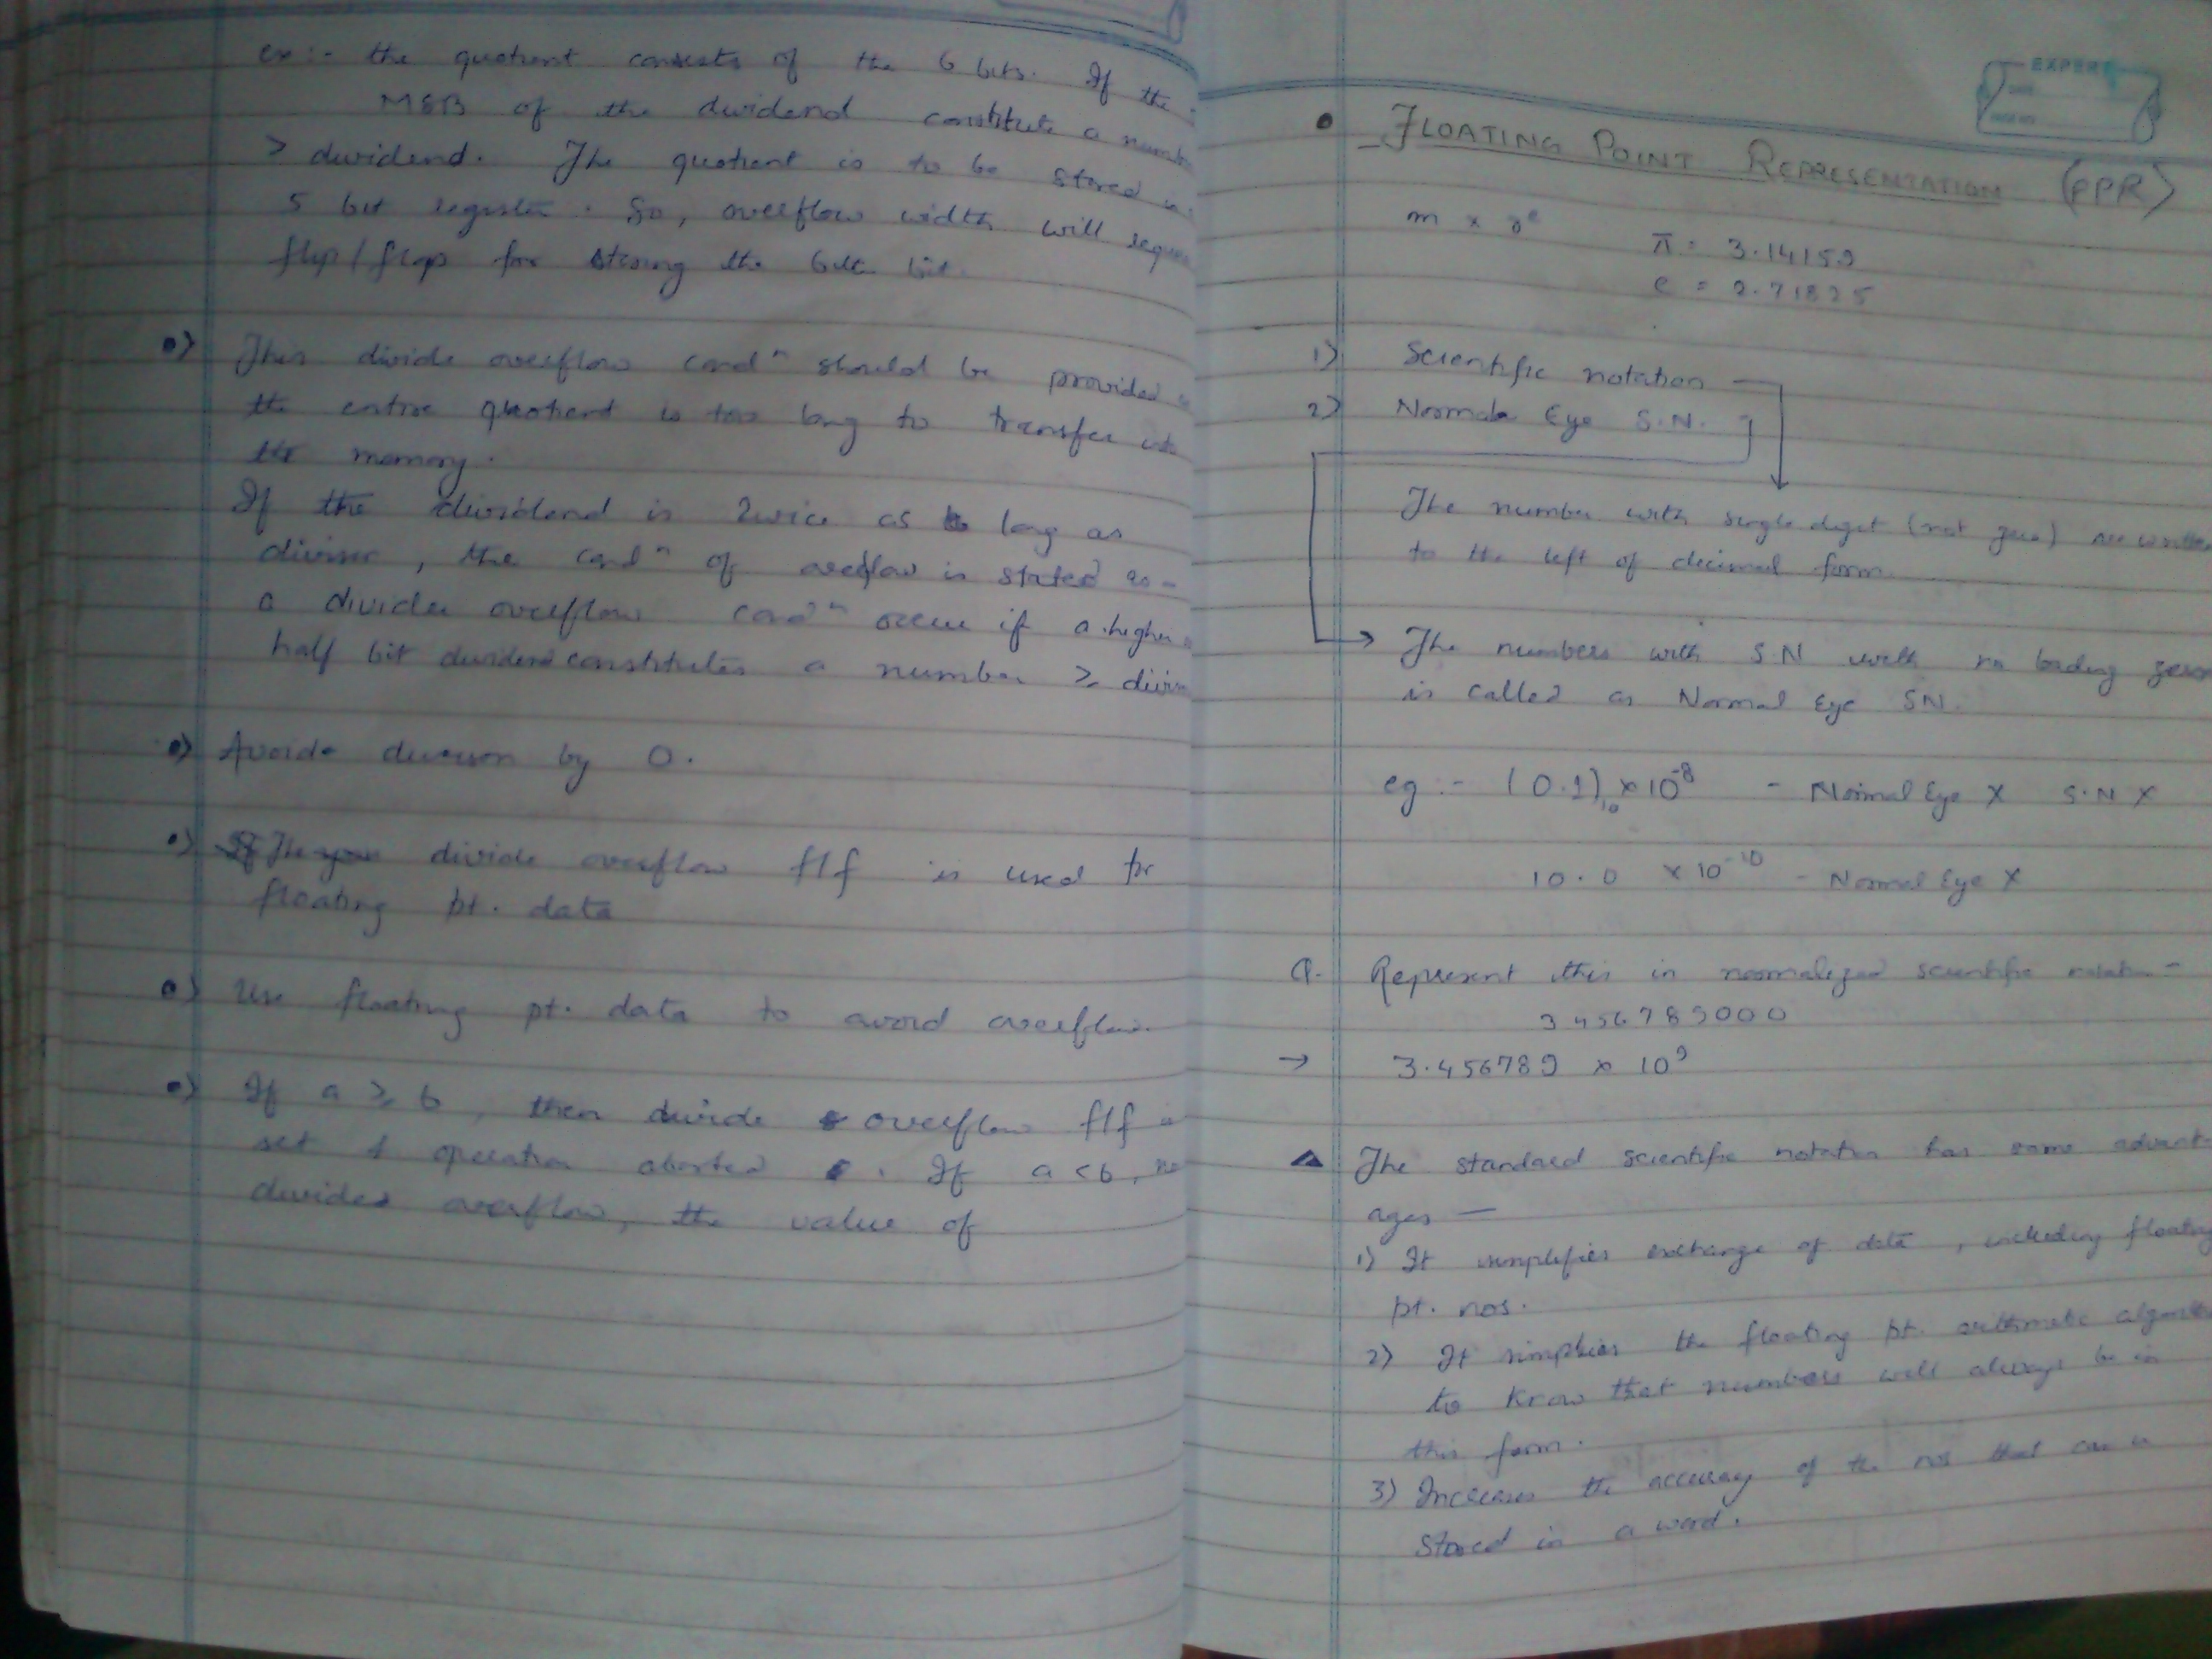 ex :- the quotient consists of the 6 bits. If the
MSB of the dividend constitute a numb
> dividend. The quotient is to be stored in
5 bit register. So, overflow width will requ
flip/flop for storing the 6th bit.
•) This divide overflow condⁿ should be provided
the entire quotient is too long to transfer
the memory.
If the dividend is 2wice as long as
divisor, the condⁿ of overflow is stated as -
a divider overflow condⁿ occur if a higher
half bit dividend constitutes a number ≥ divis
•) Avoide division by 0.
•) The divide overflow f/f is used for
floating pt. data
•) Use floating pt. data to avoid overflow.
•) If a ≥ b, then divide overflow f/f is
set & operation aborted. If a < b, no
divided overflow, the value of
EXPERT
DATE
• FLOATING POINT REPRESENTATION (FPR)
m x rᵉ
π = 3.14159
e = 2.71825
1) Scientific notation
2) Normal Eye S.N.
The number with single digit (not zero) are written
to the left of decimal form.
The numbers with S.N with no leading zeros
is called as Normal Eye SN.
eg :- (0.1)₁₀ x 10⁻⁸ - Normal Eye X S.N X
10.0 x 10⁻¹⁰ - Normal Eye X
Q. Represent this in normalized scientific notatn -
3456789000
→ 3.456789 x 10⁹
△ The standard scientific notation has some advant-
ages —
1) It simplifies exchange of data, including floating
pt. nos.
2) It simplies the floating pt. arithmetic algorith
to know that numbers will always be in
this form.
3) Increases the accuracy of the nos that can be
stored in a word.